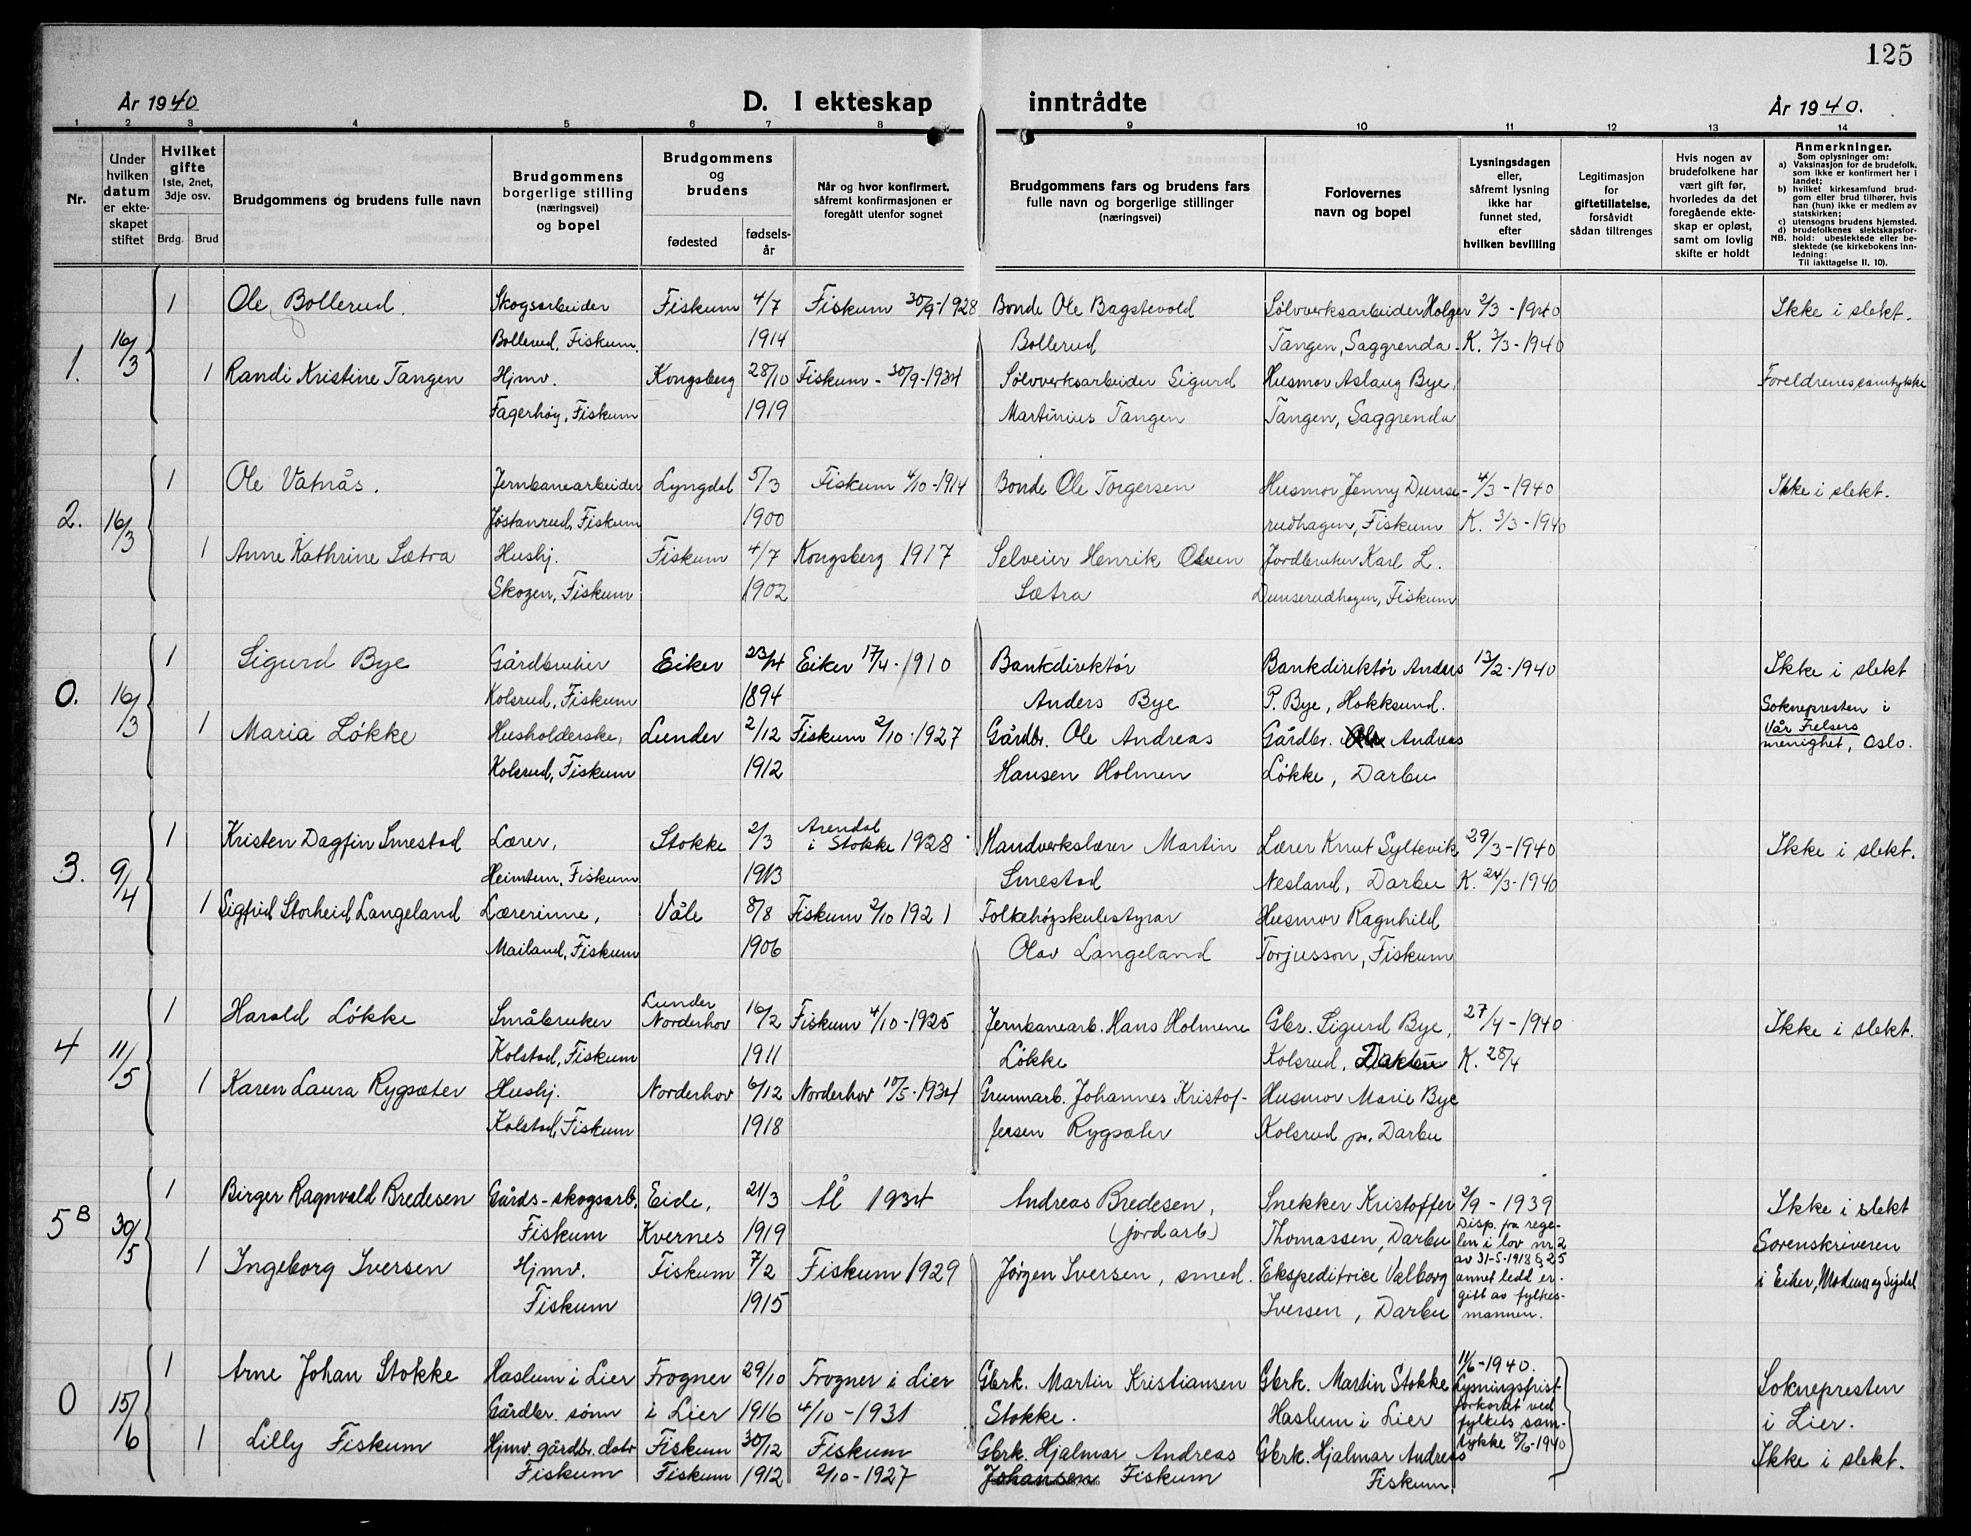 125
År 1940
D. I ekteskap inntrådte
År 1940.
1 2 3 4 5 6 7 8 9 10 11 12 13 14
Nr.
Under
hvilken
datum
er ekte-
skapet
stiftet
Hvilket
gifte
1ste, 2net,
3dje osv.
Brdg. Brud
Brudgommens og brudens fulle navn
Brudgommens
borgerlige stilling
(næringsvei)
og bopel
Brudgommens
og
brudens
fødested
fødsels-
år
Når og hvor konfirmert,
såfremt konfirmasjonen er
foregått utenfor sognet
Brudgommens fars og brudens fars
fulle navn og borgerlige stillinger
(næringsvei)
Forlovernes
navn og bopel
Lysningsdagen
eller,
såfremt lysning
ikke har
funnet sted,
efter
hvilken bevilling
Legitimasjon
for
giftetillatelse,
forsåvidt
sådan tiltrenges
Hvis nogen av
brudefolkene har
vært gift før,
hvorledes da det
foregående ekte-
skap er opløst,
samt om lovlig
skifte er holdt
Anmerkninger.
Som oplysninger om:
a) Vaksinasjon for de brudefolk,
som ikke er konfirmert her i
landet;
b) hvilket kirkesamfund brud-
gom eller brud tilhører, hvis
han (hun) ikke er medlem av
statskirken;
c) utensogns brudens hjemsted.
d) brudefolkenes slektskapsfor-
NB. hold: ubeslektede eller be-
slektede (se kirkebokens inn-
ledning:
Til iakttagelse II, 10).
1 Ole Bollerud. Skogsarbeider Fiskum 4/7 Fiskum 30/9-1928 Bonde Ole Bagstevold Sølvverksarbeider Holger 2/3-1940 Ikke i slekt.
16/3 Bollerud, Fiskum. 1914 Bollerud Tangen, Saggrenda. K. 3/3-1940
1. 1 Randi Kristine Tangen Hjmv. Kongsberg 28/10 Fiskum - 30/9-1934 Sølvverksarbeider Sigurd Husmor Aslaug Bye, Foreldrenes samtykke
Fagerhøy, Fiskum 1919 Martinius Tangen Tangen, Saggrenda
1 Ole Vatnås. Jernbanearbeider Lyngdal 5/3 Fiskum 4/10-1914 Bonde Ole Torgersen Husmor Jenny Dunse- 4/3-1940 Ikke i slekt.
2. 16/3 Jøstanrud, Fiskum 1900 rudhagen, Fiskum K. 3/3-1940
1 Anne Kathrine Sætra Hushj. Fiskum 4/7 Kongsberg 1917 Selveier Henrik Olsen Jordbruker Karl L.
Skogen, Fiskum 1902 Sætra Dunserudhagen, Fiskum
1 Sigurd Bye Gårdbruker Eiker 23/4 Eiker 17/4-1910 Bankdirektør Bankdirektør Anders 13/2-1940 Ikke i slekt
0. 16/3 Kolsrud, Fiskum 1894 Anders Bye P. Bye, Hokksund. Soknepresten i
1 Maria Løkke Husholderske, Lunder 2/12 Fiskum 2/10-1927 Gårdbr. Ole Andreas Gårdbr. Andreas Vår Frelsers
menighet, Oslo.
Kolsrud, Fiskum 1912 Hansen Holmen Løkke, Darbu
1 Kristen Dagfin Smestad Lærer, Stokke 2/3 Arendal
i Stokke 1928 Handverkslærer Martin Lærer Knut Syltevik 29/3-1940 Ikke i slekt.
3. 9/4 Heimtun, Fiskum 1913 Smestad Nesland, Darbu K. 24/3-1940
1 Sigfrid Storheid Langeland Lærerinne, Våle 8/8 Fiskum 2/10 1921 Folkehøgskulestyrar Husmor Ragnhild
Mailand, Fiskum 1906 Olav Langeland Torjusson, Fiskum
1 Harald Løkke Småbruker Lunder
Norderhov 16/2 Fiskum 4/10-1925 Jernbanearb. Hans Holmene Gbr. Sigurd Bye, 27/4-1940 Ikke i slekt.
4 11/5 Kolstad, Fiskum 1911 Løkke Kolsrud, Darbu K. 28/4
1 Karen Laura Rygsæter Hushj. Norderhov 6/12 Norderhov 10/5-1934 Grunnarb. Johannes Kristof- Husmor Marie Bye
Kolstad, Fiskum 1918 fersen Rygsæter Kolsrud pr. Darbu
1 Birger Ragnvald Bredesen Gårds-skogsarb. Eide, 21/3 Ål 1934 Andreas Bredesen, Snekker Kristoffer 2/9-1939 Ikke i slekt
5B 30/5 Fiskum Kvernes 1919 (jordarb) Thomassen, Darbu Disp. fra rege-
len i lov nr. 2 Sorenskriveren
1 Ingeborg Iversen Hjmv. Fiskum 7/2 Fiskum 1929 Jørgen Iversen, smed. Ekspeditrice Valborg av 31-5-1918 § 25
annet ledd er i Eiker, Modum og Sigdal
Fiskum 1915 Iversen, Darbu gitt av fylkes-
mannen.
1 Arne Johan Stokke Haslum i Lier Frogner 29/10 Frogner i Lier Gbrk. Martin Kristiansen Gbrk. Martin Stokke 11/6-1940.
Lysningsfrist Soknepresten
0 15/6 Gårdbr. sønn i Lier 1916 4/10-1931 Stokke. Haslum i Lier forkortet ved
fylkets sam- i Lier.
1 Lilly Fiskum Hjmv. gårdbr. datr Fiskum 30/12 Fiskum Gbrk. Hjalmar Andreas Gbrk. Hjalmar Andreas tykke 8/6-1940 Ikke i slekt.
Fiskum Fiskum 1912 2/10-1927 Johansen Fiskum Fiskum.